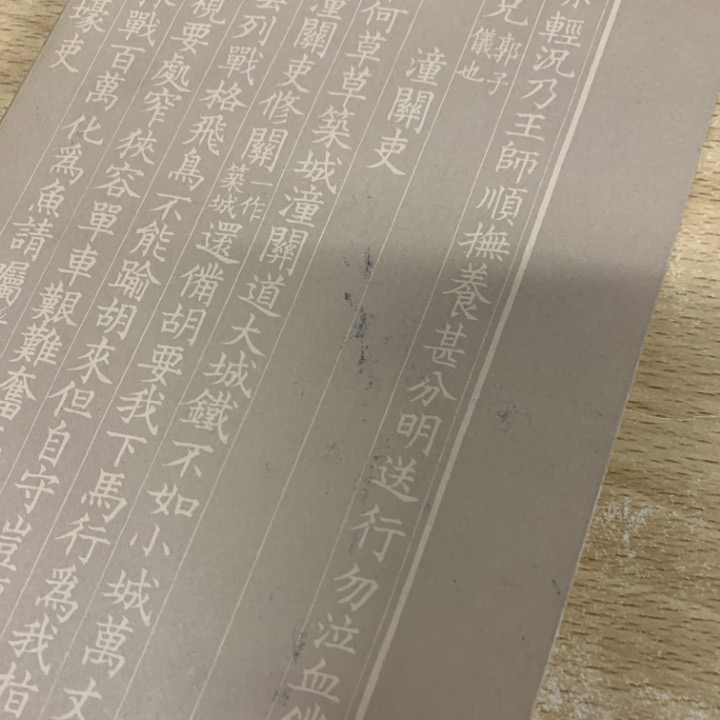 輕況乃王師順撫養甚分明送行勿泣血
兄郭子儀也
潼關吏
何草草築城潼關道大城鐵不如小城萬丈
潼關吏修關一作築城還備胡要我下馬行爲我指
雲列戰格飛鳥不能踰胡來但自守豈
視要處窄狹容單車艱難奮
戰百萬化爲魚請囑
壕吏